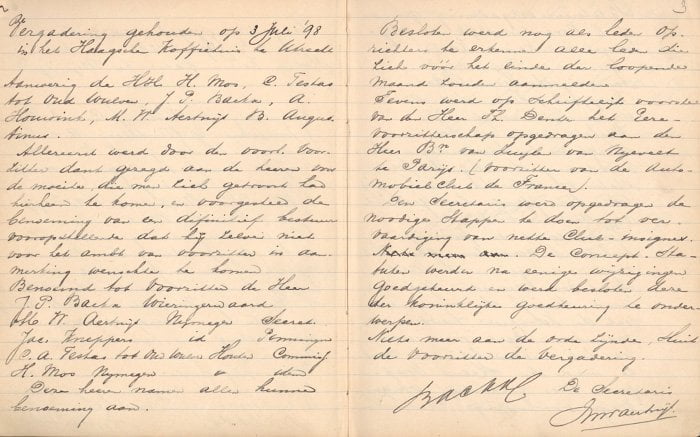 2
Vergadering gehouden op 3 Juli '98
in het Haagsche Koffiehuis te Utrecht
Aanwezig de HH. H. Mos, C. Testas
tot Oud Wulven, J. P. Backx, A.
M. W. Aertnijs B. Augus
tinus.
Allereerst werd door den voorl. Voor
zitter dank gezegd aan de heeren voor
de moeite, die men zich getroost had
hierheen te komen, en voorgesteld de
benoeming van een definitief bestuur
vooropstellende dat hij zelve niet
voor het ambt van voorzitter in aan
merking wenschte te komen
Benoemd tot Voorzitter de Heer
J. P. Backx Wieringerwaard
M. W. Aertnijs Nijmegen Secret.
Jac. Knippers id Penningm
C. A. Testas tot Oud Wulven Houten Commiss
H. Mos Nijmegen " idem
Deze heeren namen allen hunne
benoeming aan.
3
Besloten werd nog als leden op
richters te erkennen alle leden die
zich vóór het einde der loopende
maand zouden aanmelden.
Tevens werd op schriftelijk voorstel
van den Heer Th. het Eere-
voorzitterschap opgedragen aan den
Heer Bn. van Zuylen van Nyevelt
te Parijs. (Voorzitter van de Auto-
mobielclub de France).
Den Secretaris werd opgedragen de
noodige stappen te doen tot ver
vaardiging van nette Club-insignes.
Niets meer aan. De Concept-Sta-
tuten werden na eenige wijzigingen
goedgekeurd en werd besloten deze
der koninklijke goedkeuring te onder
werpen.
Niets meer aan de orde zijnde, sluit
de Voorzitter de vergadering.
JPBackx
De Secretaris
MWAertnijs